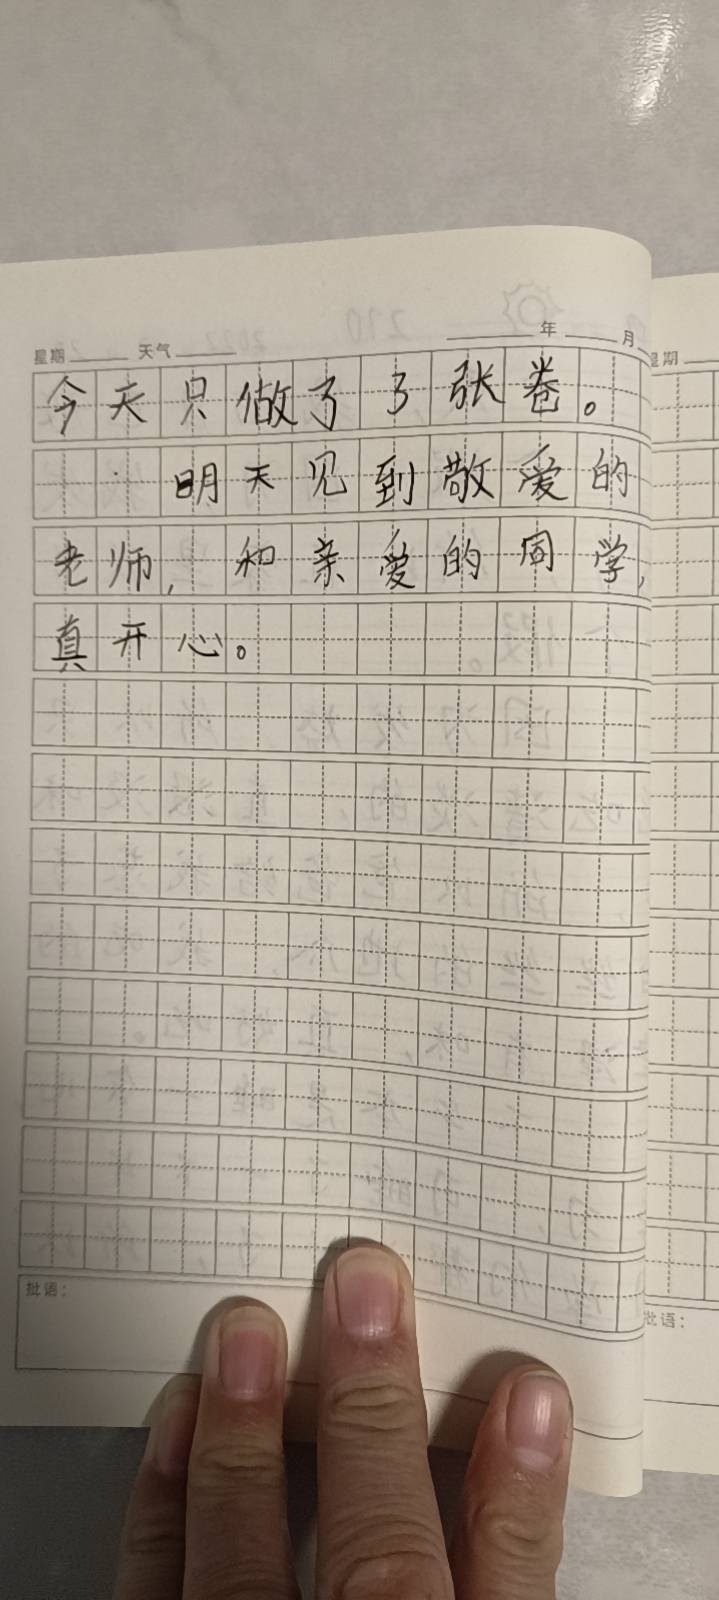 星期 天气 年 月
今天只做了3张卷。
明天见到敬爱的
老师,和亲爱的同学,
真开心。
批语：
星期
批语：